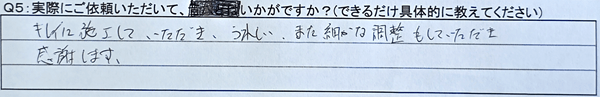 Q5:実際にご依頼いただいて、いかがですか?(できるだけ具体的に教えてください)
キレイに施工して、いただき、うれしい、また細かな調整もしていただき
感謝します。